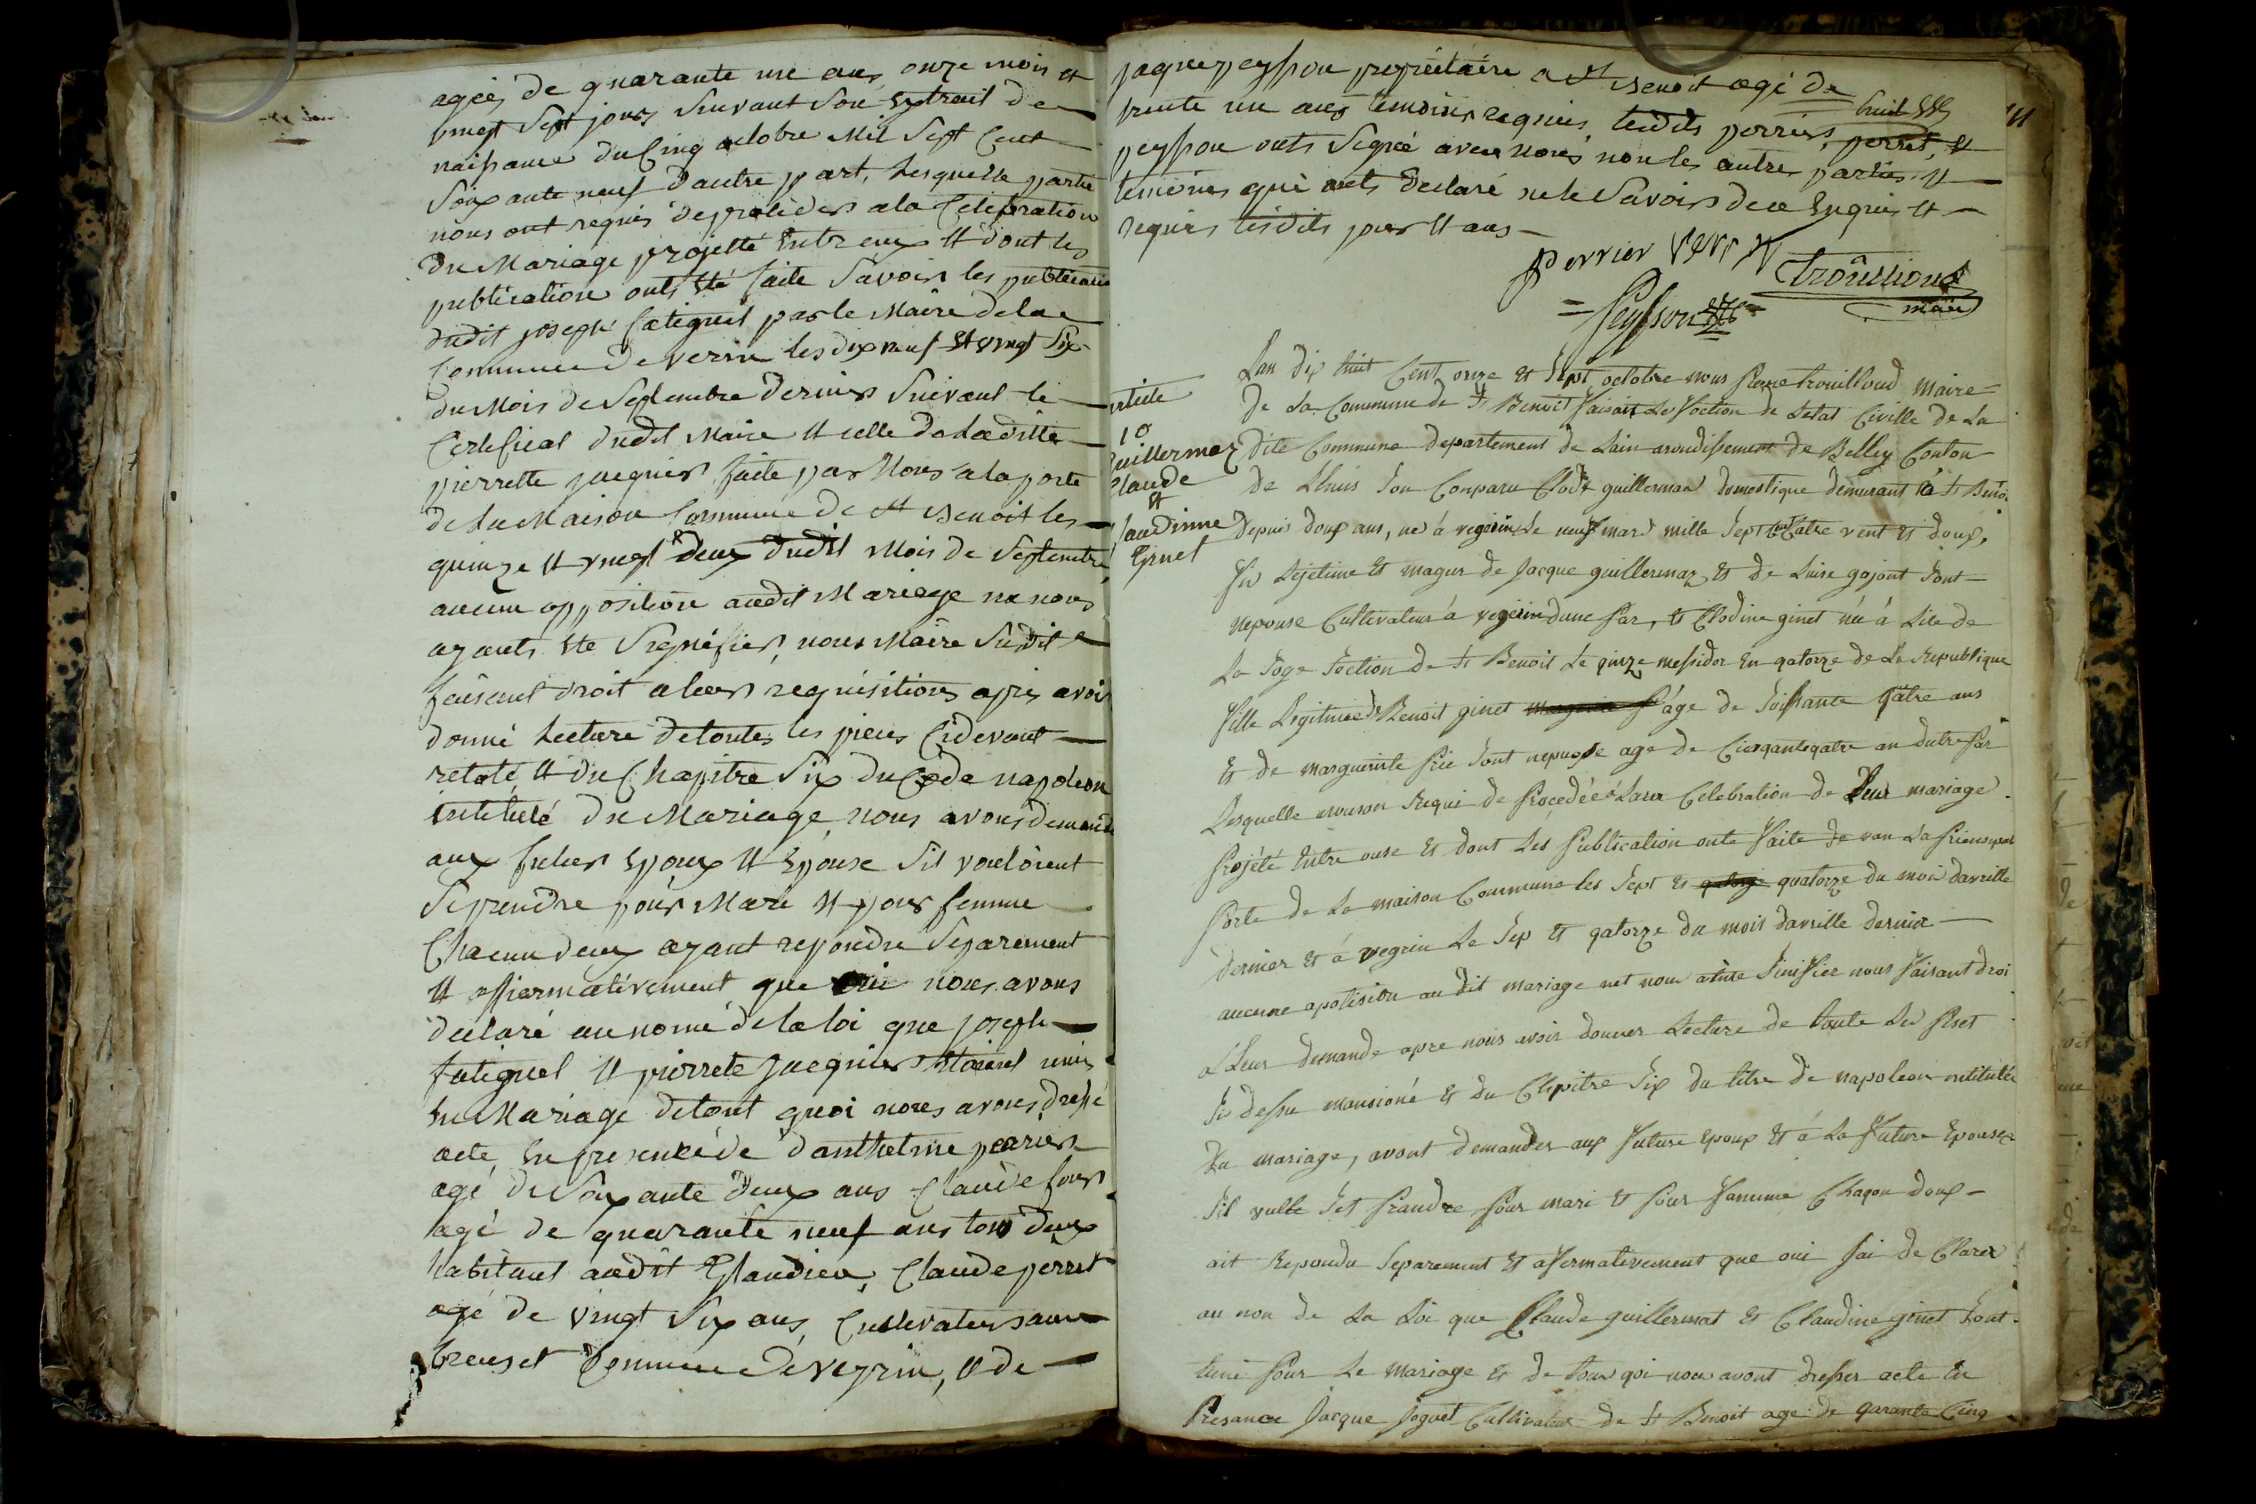 agée de quarante un ans onze mois et
vingt sept jours suivant son Extrait de
naissance du Cinq octobre Mil sept Cent
Soixante neuf d'autre part, Lesquelle partie
nous ont requis de proceder a la Celebration
du Mariage projetté Entreux et dont les
publications onts Eté faite Savoir les publications
dudit joseph fatiguet par le Maire de la
Commune de verin les dix neuf Et vingt Six
du Mois de Septembre dernier Suivant le
Certificat dudit Maire et celle de Laditte
pierrette jacquier faite par Nous a la porte
de La Maison Commune de st Benoit les
quinze et vingt deux dudit Mois de Septembre
aucune opposition audit Mariage ne nous
ayants Ete Signifier, nous Maire Susdit
faisant droit a leur requisitions apres avoir
donné Lecture detoutes les pieces Cidevant
relaté, et du Chapitre Six du Code napoleon
intitulé du Mariage, nous avons demandé
aux futur Epoux et Epouse Sil vouloient
Se prendre pour Mari et pour femme
Chacun deux ayant repondu Separement
et affirmativement que oui nous avons
declaré au nom de la loi que joseph
fatiguet et pierrete jacquier Etoient unis
En Mariage detout quoi nous avons dressé
acte, En presence de danthelme perrier
agé de Soixante deux ans Claude
agé de quarante neuf ans tous deux
habitant audit Glandieu, Claude perret
agé de vingt Six ans, Cultivateur
Commune de veyrin, et de
jaque peysson propriétaire a st Benoit agé de
trente un ans temoins requis, lesdits perrier, perret, et
peysson onts Signé avec Nous non les autres parties et
temoins qui onts declaré ne le Savoir de ce Enquis et
requis lesdits jour et ans
perrier
Peysson
trouilloud
maire
Lan dix huit Cent onze et Sept octobre nous Pierre trouilloud maire
De La Commune de St Benoit faisant Les foction de Letat Civille de La
dite Commune departement de Lain arondissement de Belley Canton
de Lhuis Son Conparu Clode guillermaz domestique demeurant à St Benoi
Depuis doux ans, né à vegrin Le neuf mard mille Sept Cent Catre vent et doux,
fis Lejetime Et magur de Jacque guillermaz Et de Luise gojont Sont
nepouse Cultivateur à vegrin dune Par, et Clodine ginet née à Lile de
La Soge Section de St Benoit Le quinze messidor En gatorze de La Republique
fille Legitime de Benoit ginet age de Soissante qatre ans
Et de marguerite Sont nepuose age de Cinqante qatre an dutre Par
Lesquelle nouson Requi de Procedée à Laux Celebration de Leur mariage
Projété Entre ouse Et dont Les Publication onte faite de van La
Porte de La maison Commune les Sept Et quatorze du moi davrille
Dernier Et á vegrin Le Sep Et gatorze du mois davrille dernier
aucune apotision au dit mariage net nous atute Sinifiez nous faisant droi
a Leur demande apre nous avoir donner Lecture de toute Les Piset
Si dessu mansioné Et du Chapitre Six du titre de napoleon entitullé
Du mariage, avont demander aux future Epoux Et á La future Epousez
Sil vulle Set Prandre Pour mari Et Pour Famme Chaqun doux
ait Repondu Separement Et afermativement que oui Jai de Clarer
au non de La Loi que Claude guillermat Et Claudine ginet Sont
Runi Pour Le mariage Et de tous qoi nous avont dresser acte En
Presance Jacque Joguet Cultivateur de St Benoit age de qarante Cinq
article
10
Guillermaz
Claude
et
Claudinne
Ginet